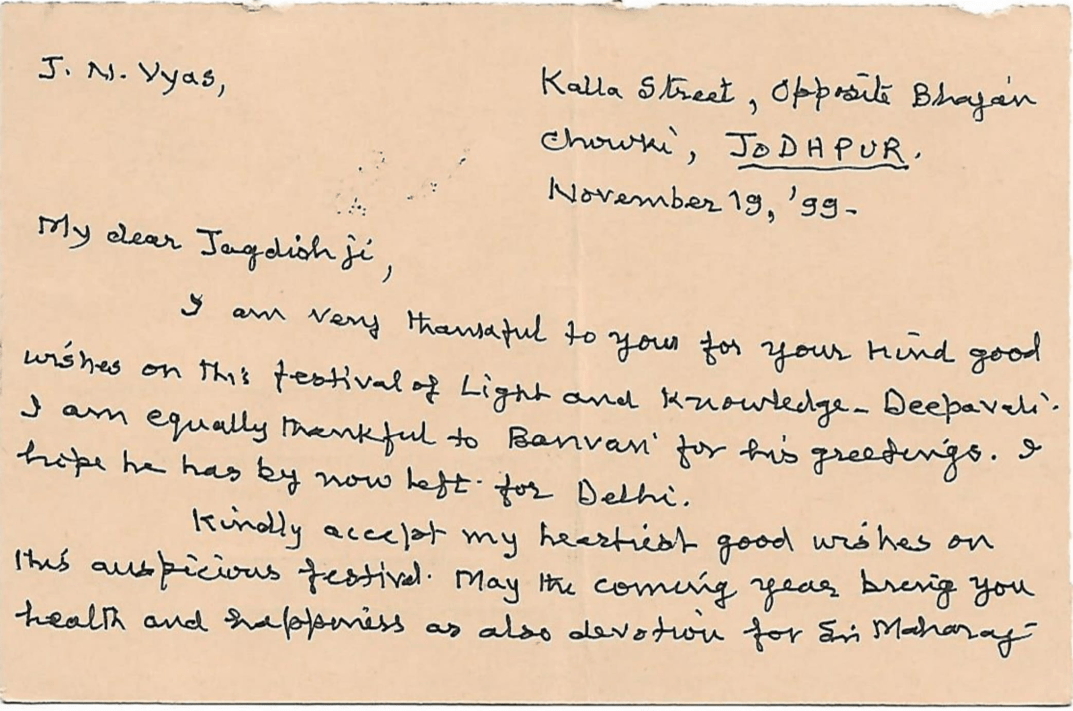 J. N. Vyas,
Kalla Street, Opposite Bhajan
Chowki, JODHPUR.
November 19, '99-
My dear Jagdish ji,
I am very thankful to your for your kind good
wishes on this festival of Light and Knowledge - Deepavali.
I am equally thankful to Banvari for his greetings. I
hope he has by now left for Delhi.
Kindly accept my heartiest good wishes on
this auspicious festival. May the coming year bring you
health and happiness as also devotion for Sri Maharaj-